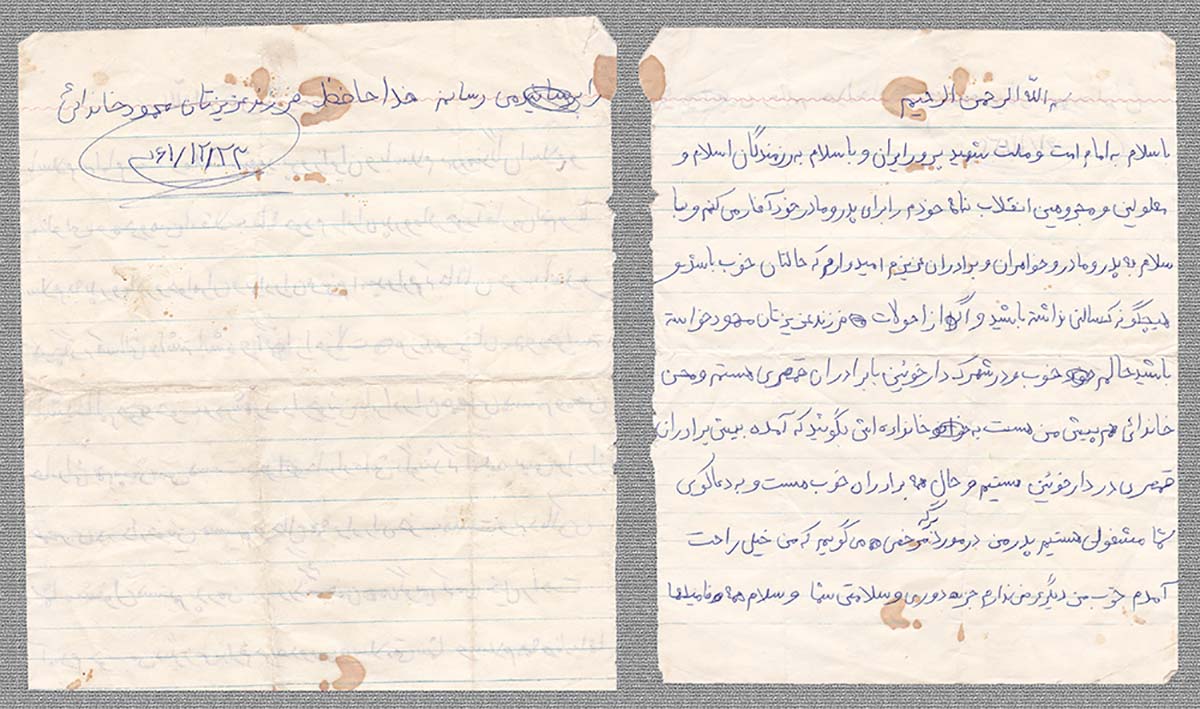 بسم الله الرحمن الرحیم
باسلام به امام امت و ملت شهید پرور ایران و با سلام به رزمندگان اسلام و
معلولین و مجروحین انقلاب نامه خودم را برای پدر و مادر خود آغاز می کنم و با
سلام به پدر و مادر و خواهران و برادران عزیزم امیدوارم که حالتان خوب باشد و
هیچگونه کسالتی نداشته باشید و اگر از احولات فرزند عزیزتان محمود خواسته
باشید حالم خوب و در شهرک دارخوئین با برادران قمصری هستم و محسن
خاندائی هم پیش من هست به خانواده اش بگوئید که آمده پیش برادران
قمصری در دارخوئین هستیم و حال همه برادران خوب هست و به دعاگوی
شما مشغول هستیم پدر من در مورد برگه مرخصی می گویم که من خیلی راحت
آمدم خوب من دیگر عرض ندارم جز دوری و سلامتی شما و سلام همه فامیلها
را می رسانم خداحافظ فرزند عزیزتان محمود خاندائی
۶۱/۱۲/۲۳